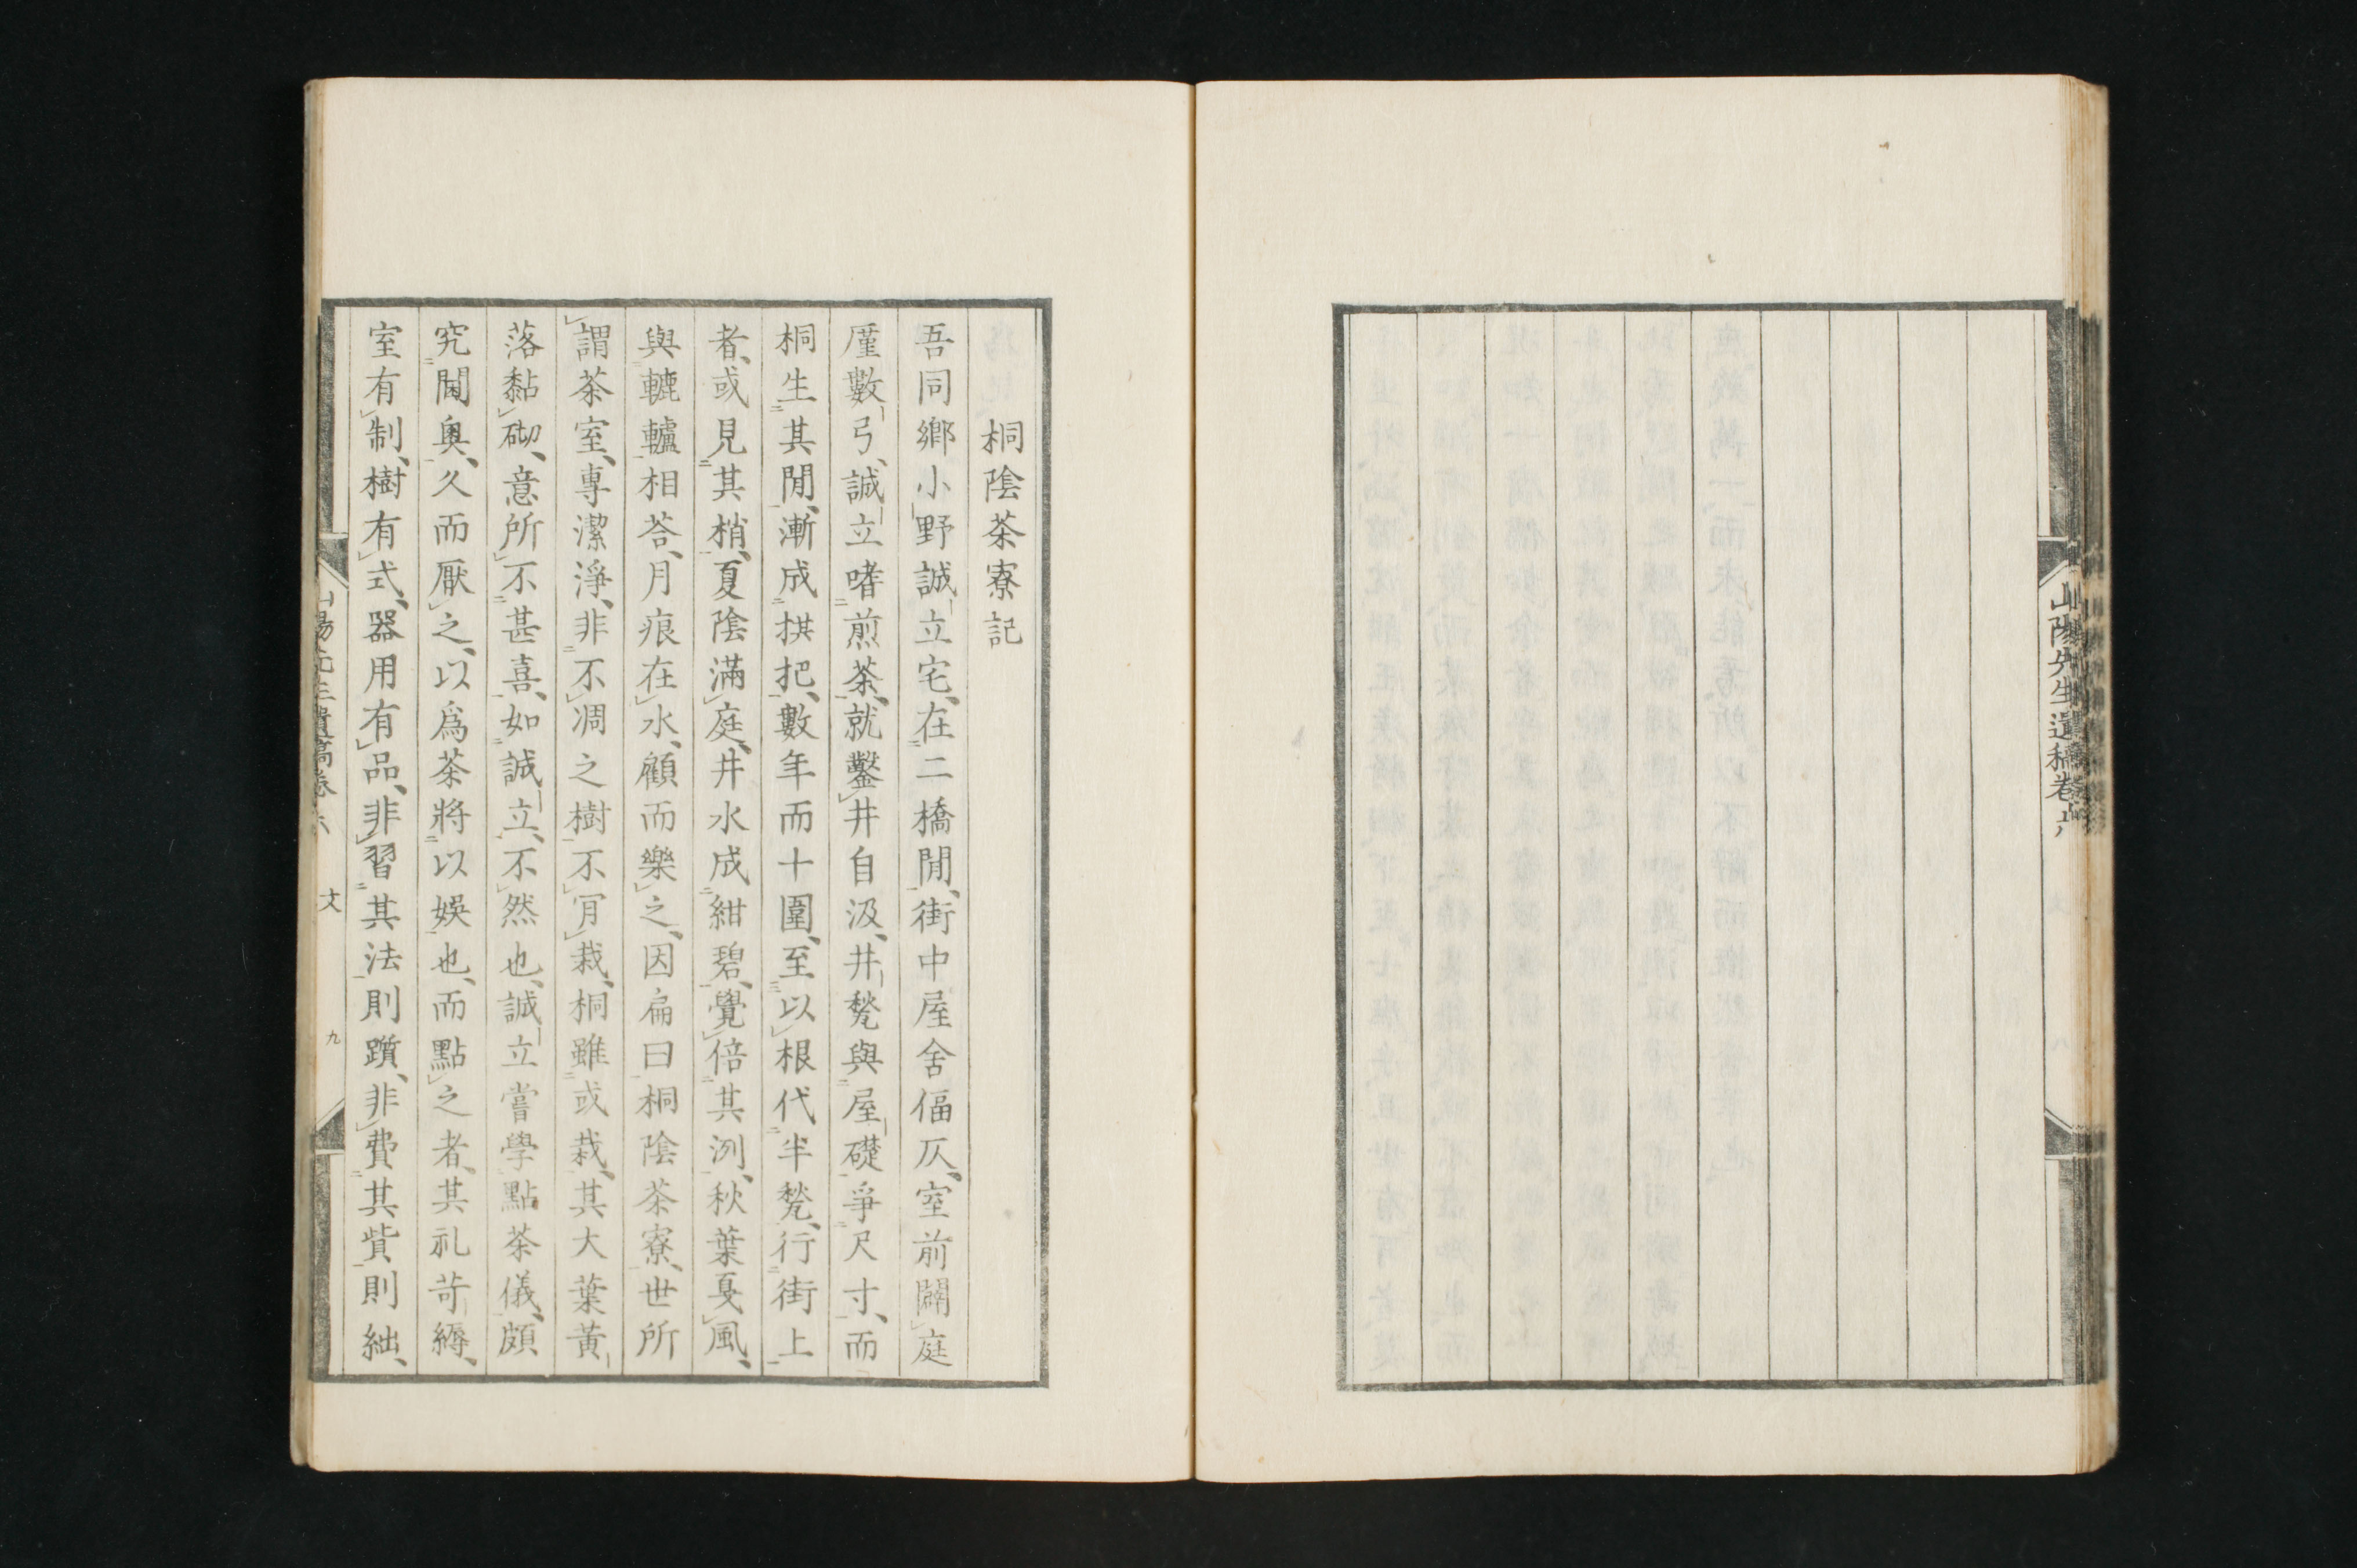 山陽先生遺稿卷六
桐陰茶寮記
吾同鄉小野誠立宅、在二橋閒、街中屋舍偪仄、室前闢庭
厪數弓、誠立嗜煎茶、就鑿井自汲、井甃與屋礎爭尺寸、而
桐生其閒、漸成拱把、數年而十圍、至以根代半甃、行街上
者、或見其梢、夏陰滿庭、井水成紺碧、覺倍其洌、秋葉戛風、
與轆轤相荅、月痕在水、顧而樂之、因扁曰桐陰茶寮、世所
謂茶室、專潔淨、非不凋之樹不肎栽、桐雖或栽、其大葉黃
落黏砌、意所不甚喜、如誠立、不然也、誠立嘗學點茶儀、頗
究閫奧、久而厭之、以爲茶將以娛也、而點之者、其礼苛縟、
室有制、樹有式、器用有品、非習其法則躓、非費其貲則絀、
山陽先生遺稿卷六
文
九